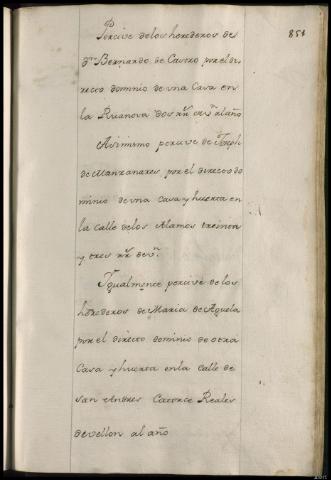 851
Percive de los herederos de
Dn. Bernardo de Castro por el di
recto dominio de vna Casa en
la Ruanova dos rs. en vn. al año
Asimismo percive de Joseph
de Manzanares por el directo do
minio de vna casa y huerta en
la calle de los Alamos treinta
y tres rs. de vn.
Igualmente percive de los
herederos de Maria de Aguela
por el directo dominio de otra
Casa y huerta en la calle de
san Andres Catorce Reales
de vellon al año